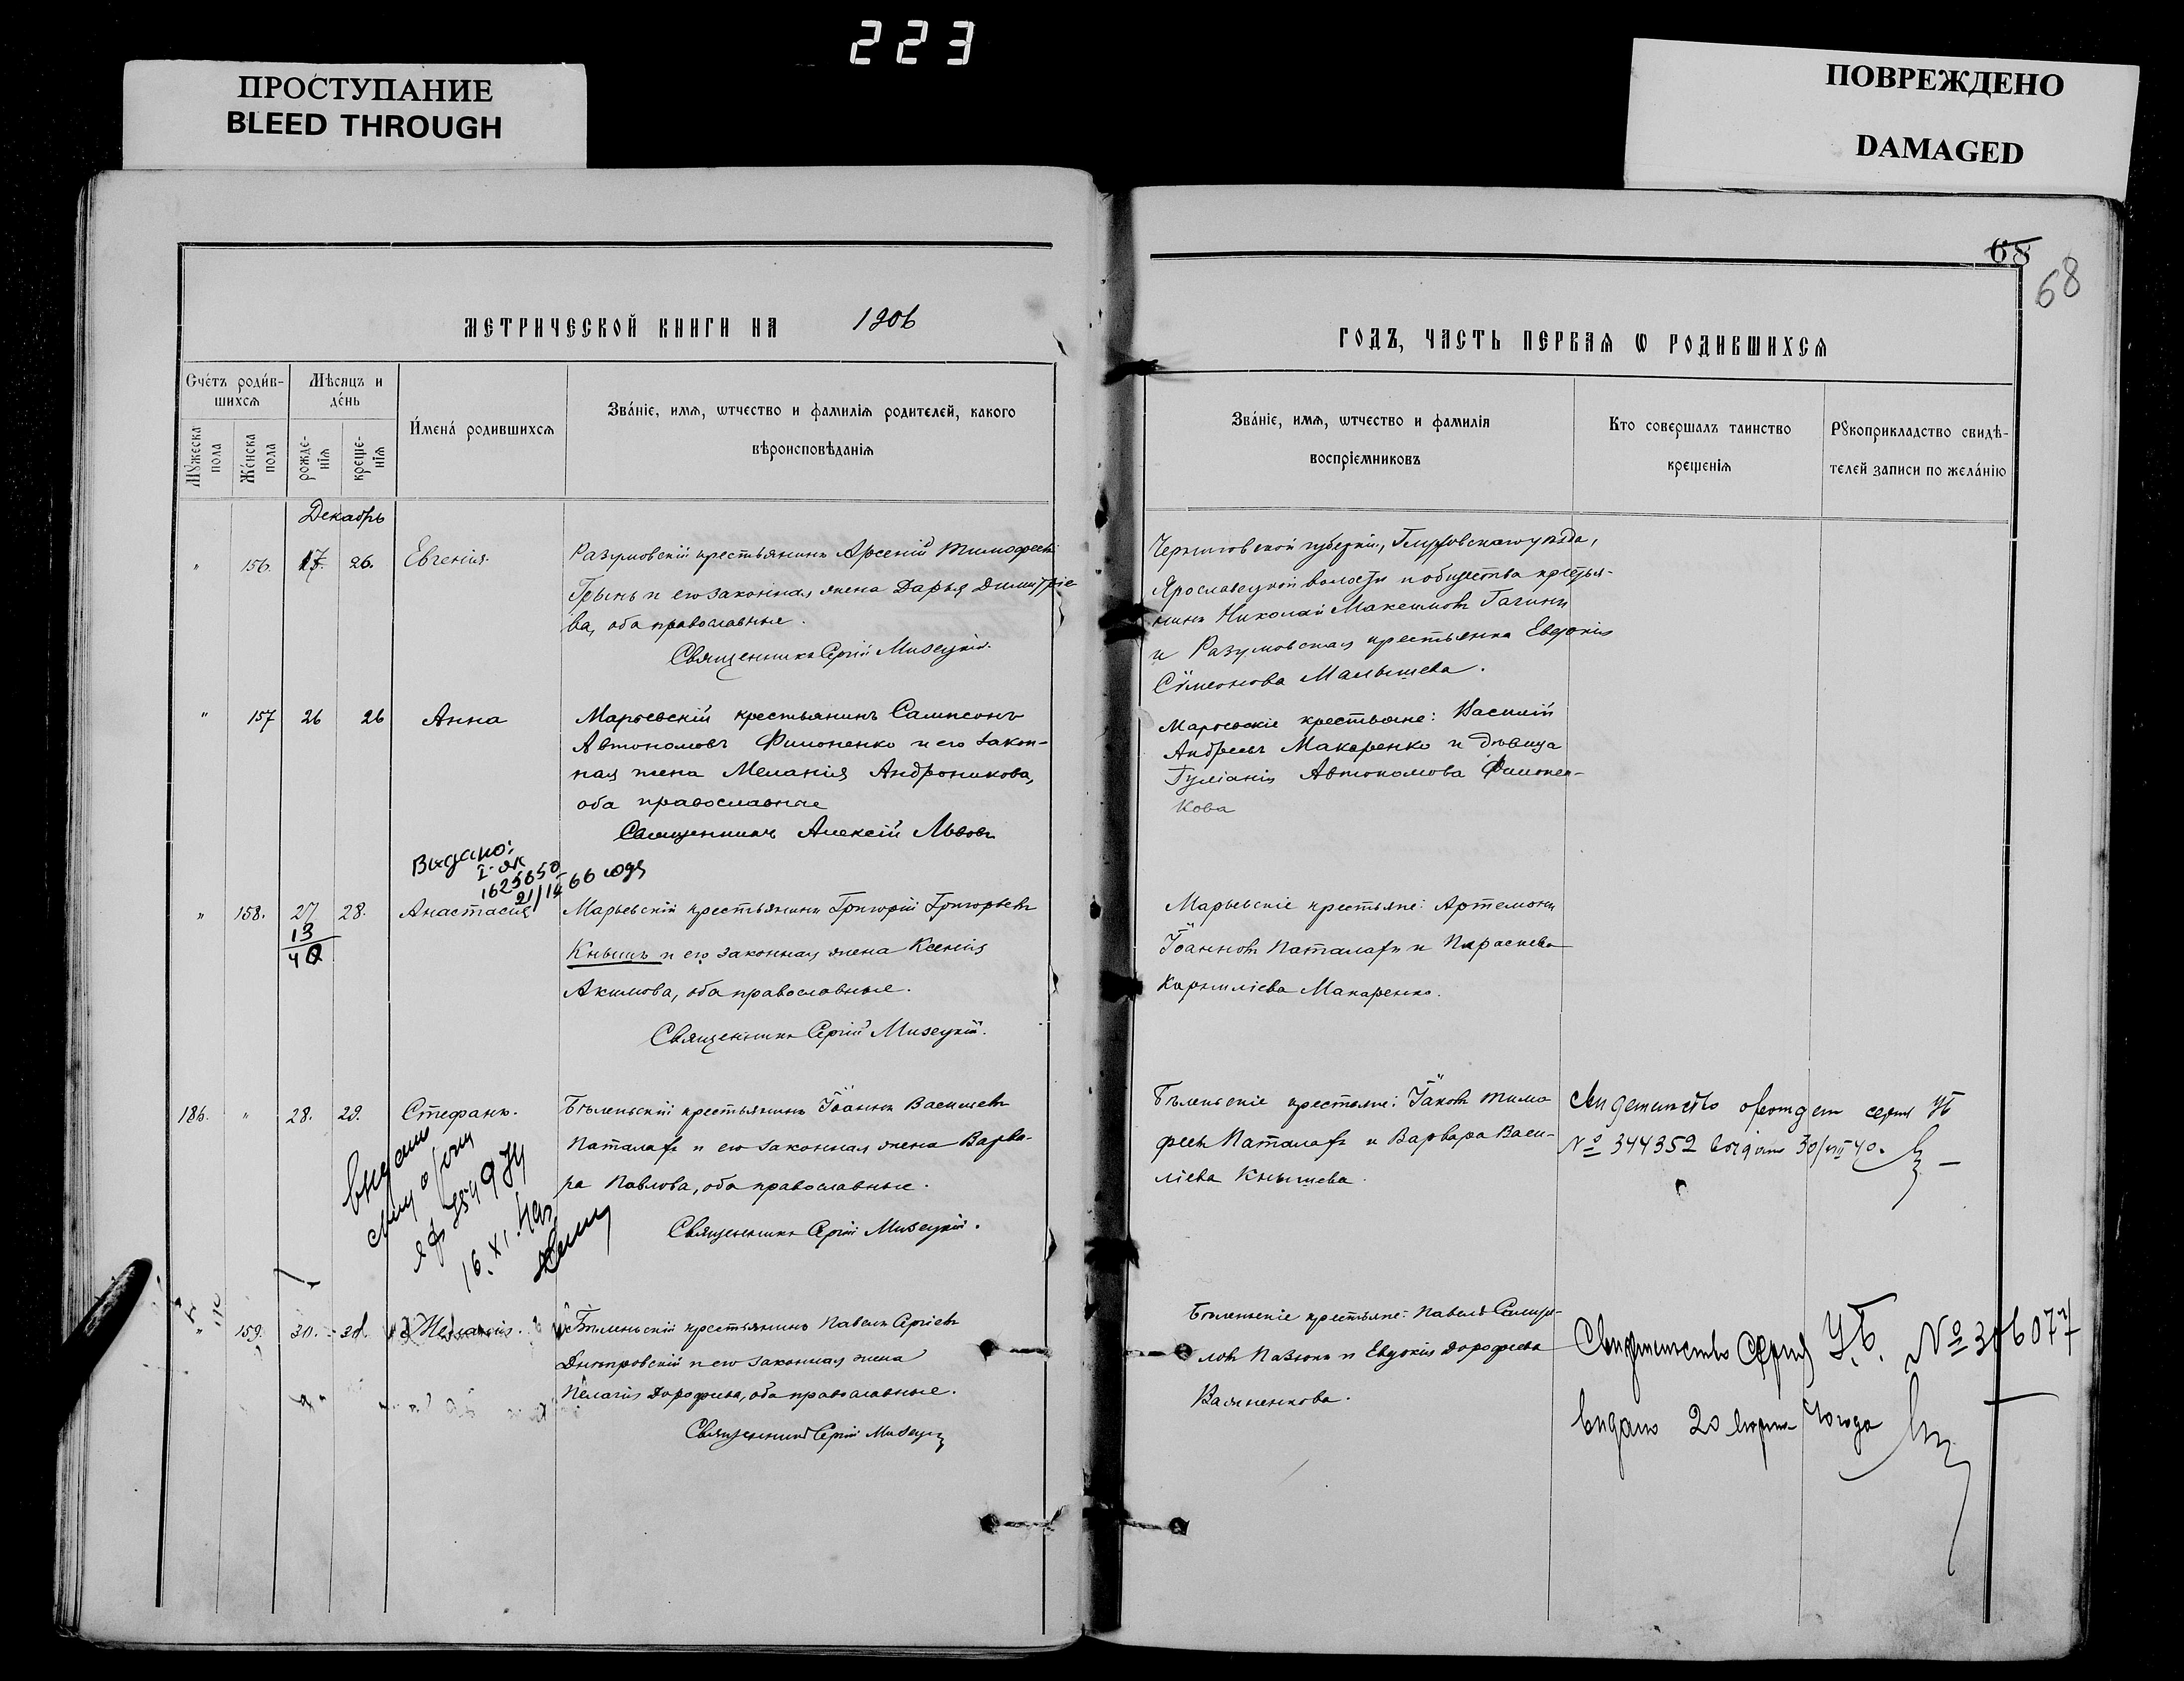 223
ПРОСТУПАНИЕ
BLEED THROUGH
ПОВРЕЖДЕНО
DAMAGED
68
68
МЕТРИЧЕСКОЙ КНИГИ НА 1906
ГОДЪ, ЧАСТЬ ПЕРВАѦ Ѡ РОДИВШИХСѦ
Сче́тъ роди́в-
шихсѧ
Мѣсяцъ и
де́нь
Мꙋжеска пола
Же́нска пола
рожде-
нїѧ
креще-
нїѧ
И́мена́ родившихсѧ
Зва́нїе, имѧ, ѿтчество и фамилїѧ родителей, какого
вѣроисповѣданїѧ
Зва́нїе, имѧ, ѿтчество и фамилїѧ
воспрїемниковъ
Кто совершалъ таинство
крещенїѧ
Рꙋкоприкладство свидѣ-
телей записи по жела́нїю
Декабрь
" 156. 17. 26. Евгенія.
Разумовскій крестьянинъ Арсеній Тимофеевъ
Грынь и его законная жена Дарья Димитріе
ва, оба православные.
Священникъ Сергій Мизецкій.
Черниговской губерніи, Глуховскаго уѣзда,
Ярославецкой волости и общества крестья-
нинъ Николай Максимовъ
и Разумовская крестьянка Евдокія
Сѵмеонова Малышева.
" 157 26 26 Анна
Марьевскій крестьянинъ Сампсонъ
Автономовъ Филоненко и его закон-
ная жена Меланія Андроникова,
оба православные
Священникъ Алексій Львовъ
Марьевскіе крестьяне: Василій
Андреевъ Макаренко и дѣвица
Іуліанія Автономова Филонен-
кова
Выдано:
1625650
" 158. 27 28. Анастасія
13
40
Марьевскій крестьянинъ Григорій Григорьевъ
Кнышъ и его законная жена Ксенія
Акимова, оба православные.
Священникъ Сергій Мизецкій.
Марьевскіе крестьяне: Артемонъ
Іоанновъ Паталахъ и Параскева
Корниліева Макаренко.
186. " 28. 29. Стефанъ.
Бѣленьскій крестьянинъ Іоаннъ Васильевъ
Паталахъ и его законная жена Варва-
ра Павлова, оба православные.
Священникъ Сергій Мизецкій.
Бѣленьскіе крестьяне: Іаковъ Тимо
феевъ Паталахъ и Варвара Васи-
ліева Кнышева.
серия УБ
№ 344352 выдано 30/VIII 40.
16. XI.
" 159. 30. 31. Пелагія.
Бѣленьскій крестьянинъ Павелъ Сергіевъ
Днѣпровскій и его законная жена
Пелагія Дорофеева, оба православные.
Священникъ Сергій Мизецкій
Бѣленьскіе крестьяне: Павелъ
и Евдокія Дорофеева
Свидетельство Серия У.Б. № 306077
выдано 20 40 года